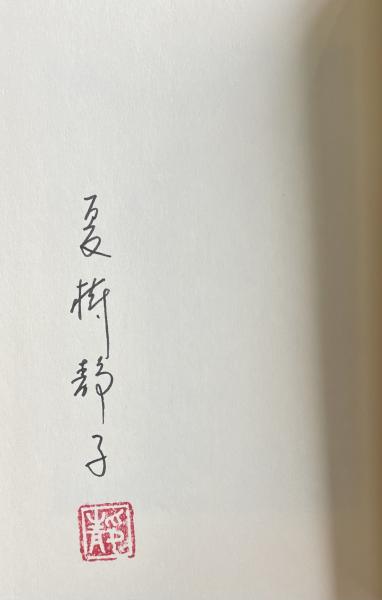 夏樹静子
靜